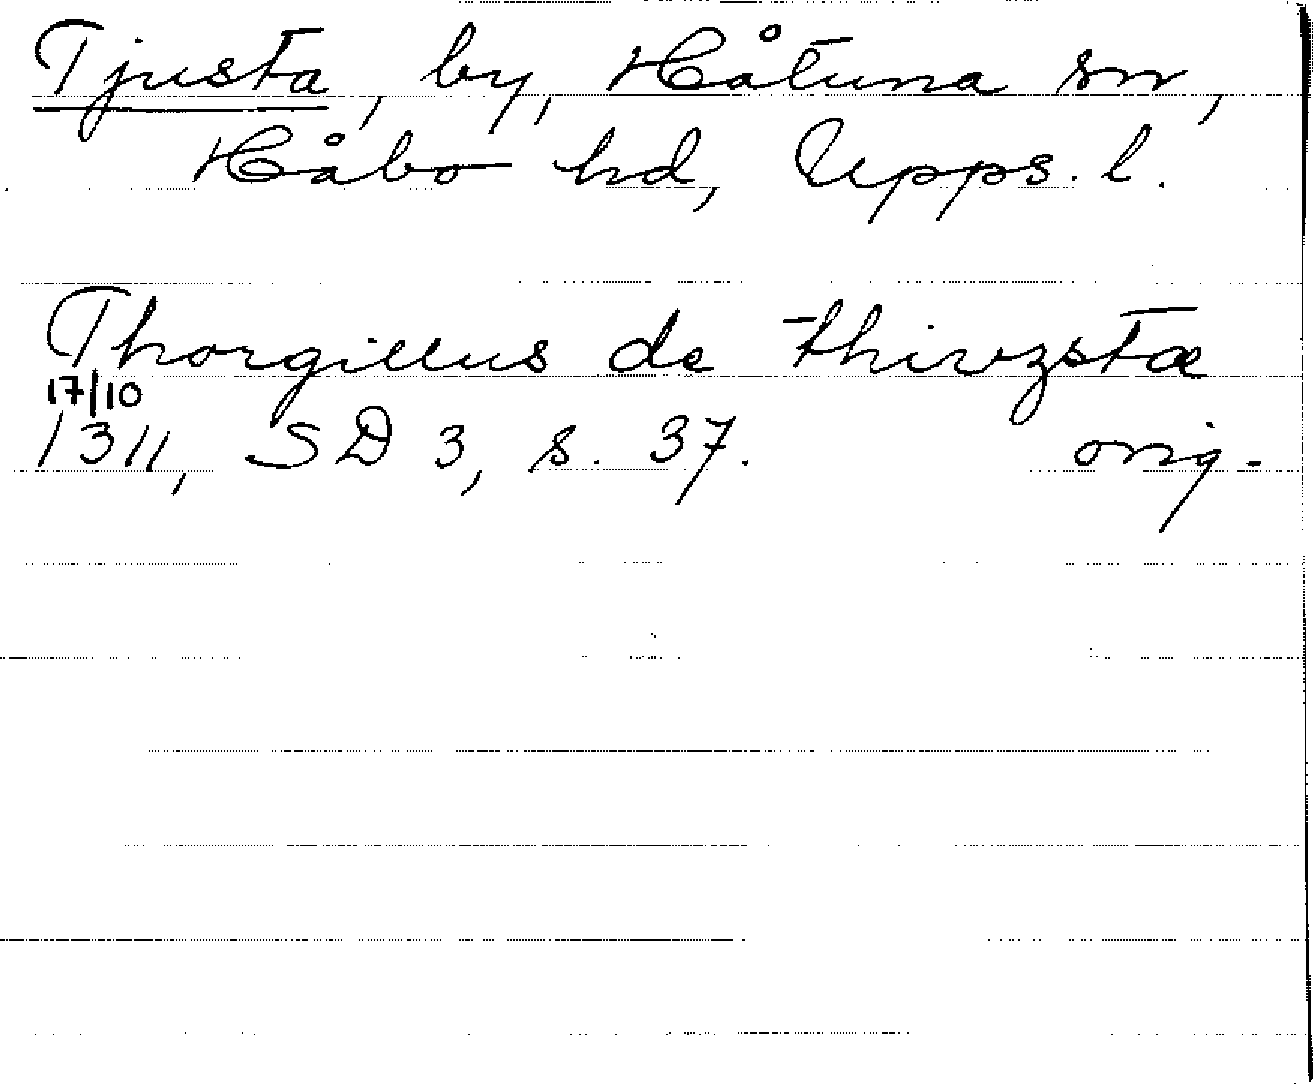 Tjusta, by, Håtuna sn,
Håbo hd, Upps. l.
Thorgillus de thirzstæ
17/10
1311, SD 3, s. 37. orig.